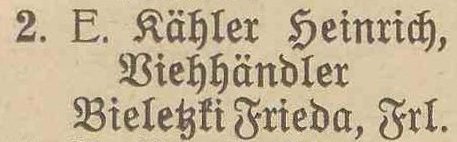 2. E. Kähler Heinrich,
Viehhändler
Bieletzki Frieda, Frl.